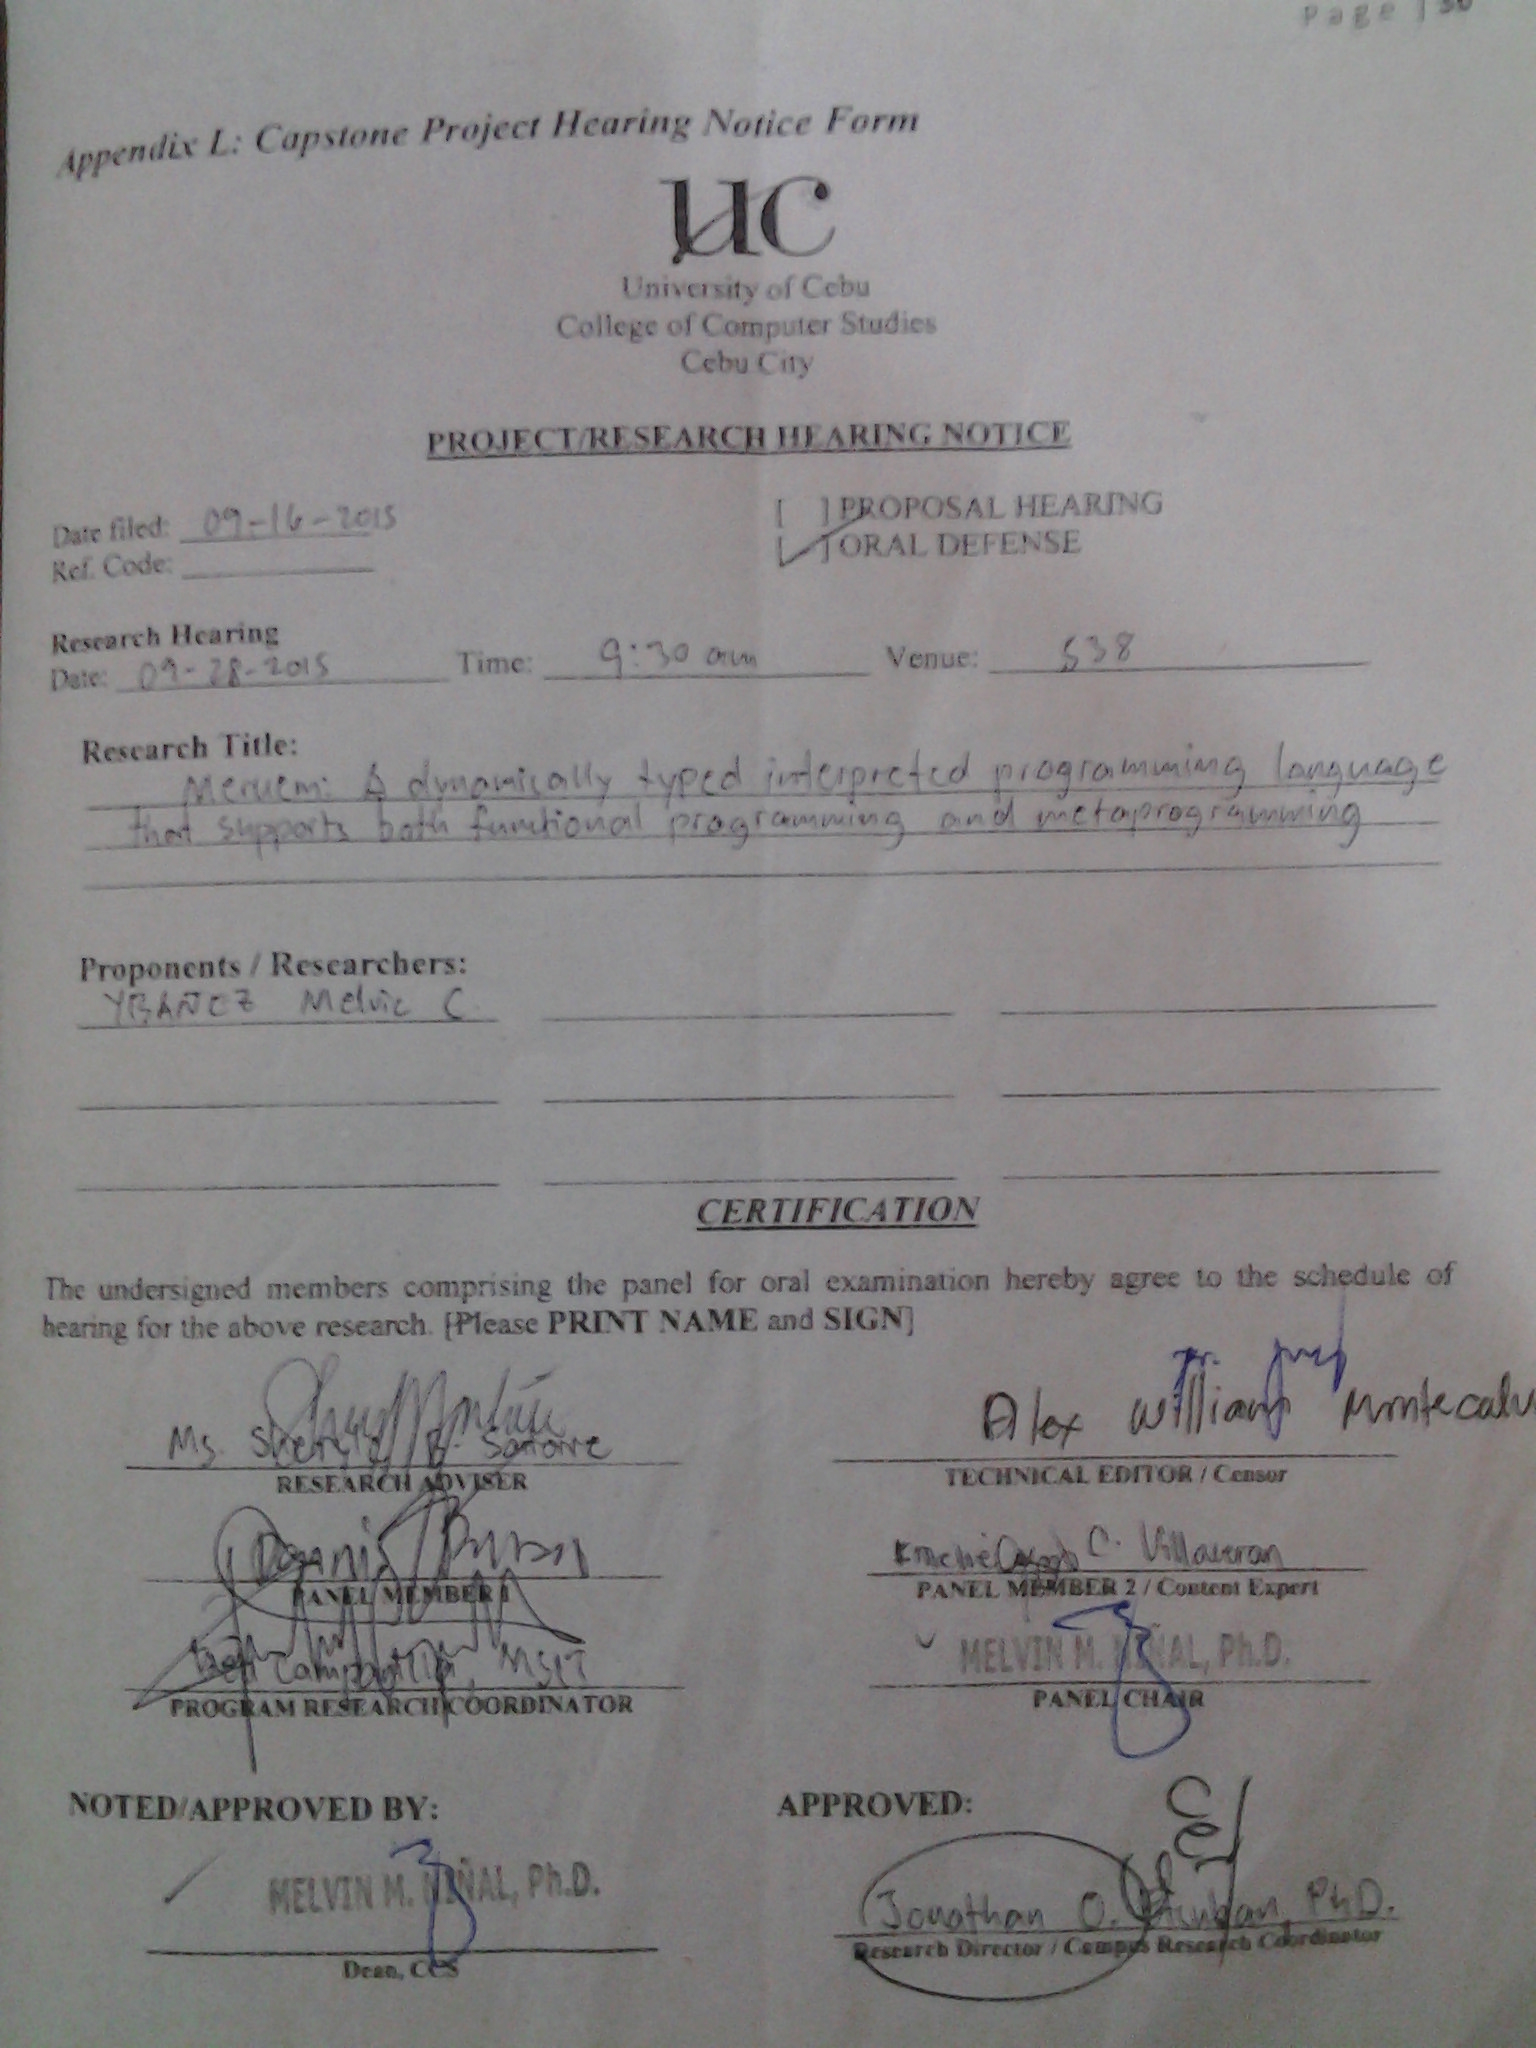 Page | 30
Appendix L: Capstone Project Hearing Notice Form
UC
University of Cebu
College of Computer Studies
Cebu City
PROJECT/RESEARCH HEARING NOTICE
Date filed: 09-16-2015
[ ] PROPOSAL HEARING
Ref. Code:
[ ] ORAL DEFENSE
Research Hearing
Date: 09-28-2015 Time: 9:30 am Venue: 538
Research Title:
Meruem: A dynamically typed interpreted programming language
that supports both functional programming and metaprogramming
Proponents / Researchers:
YBAÑEZ Melvic C.
CERTIFICATION
The undersigned members comprising the panel for oral examination hereby agree to the schedule of
hearing for the above research. [Please PRINT NAME and SIGN]
Ms. Satorre
Alex William Montecalv
RESEARCH ADVISER
TECHNICAL EDITOR / Censor
Dennis
C. Villaveran
PANEL MEMBER 1
PANEL MEMBER 2 / Content Expert
MSIT
MELVIN M. NIÑAL, Ph.D.
PROGRAM RESEARCH COORDINATOR
PANEL CHAIR
NOTED/APPROVED BY:
APPROVED:
MELVIN M. NIÑAL, Ph.D.
Jonathan O. PhD.
Dean, CCS
Research Director / Campus Research Coordinator